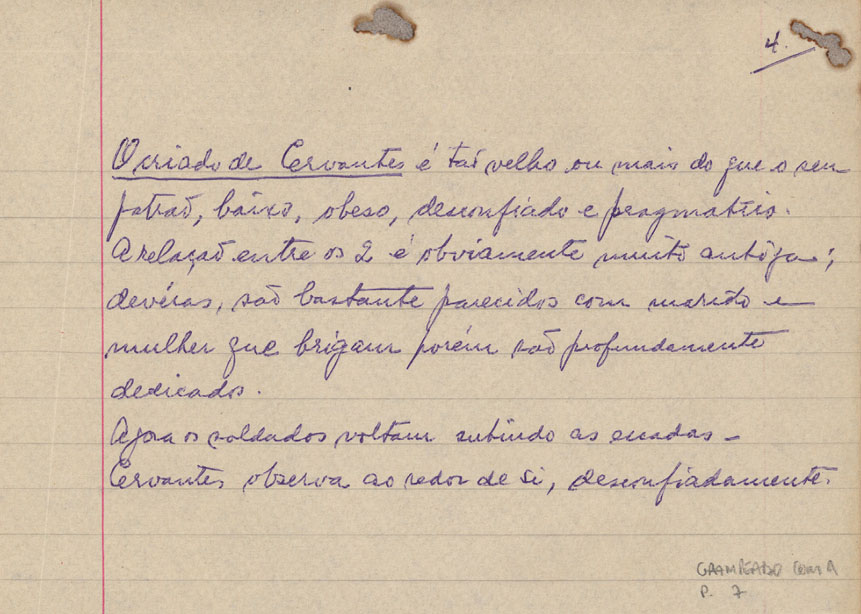 4.
O criado de Cervantes é taõ velho ou mais do que o seu
patraõ, baixo, obeso, desconfiado e pragmatico.
A relaçaõ entre os 2 é obviamente muito antiga;
devéras, saõ bastante parecidos com marido e
mulher que brigam porém saõ profundamente
dedicados.
Agora os soldados voltam subindo as escadas –
Cervantes observa ao redor de si, desconfiadamente.
GRAMPEADO COM A
P. 7